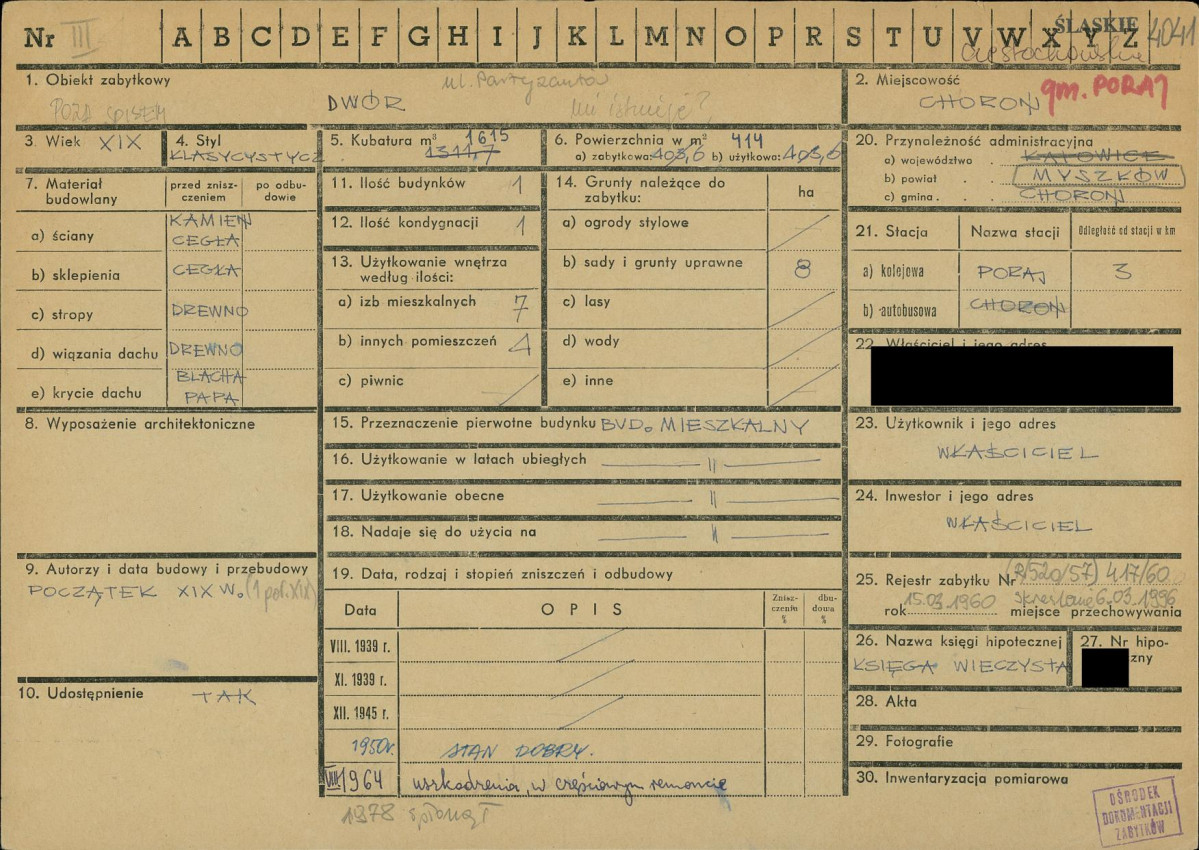 Nr III A B C D E F G H I J K L M N O P R S T U V W X Y Z ŚLĄSKIE 4041
Częstochowskie
1. Obiekt zabytkowy
ul. Partyzantów
POZA SPISEM
DWÓR
nie istnieje?
2. Miejscowość
CHOROŃ gm. PORAJ
3. Wiek XIX
4. Styl
KLASYCYSTYCZ
5. Kubatura m³ 1615
1311,7
6. Powierzchnia w m² 414
a) zabytkowa: 403,6 b) użytkowa: 403,6
7. Materiał budowlany
przed zniszczeniem
po odbudowie
a) ściany KAMIEŃ CEGŁA
b) sklepienia CEGŁA
c) stropy DREWNO
d) wiązania dachu DREWNO
e) krycie dachu BLACHA PAPA
8. Wyposażenie architektoniczne
9. Autorzy i data budowy i przebudowy
POCZĄTEK XIX W. (1 poł. XIX)
10. Udostępnienie TAK
11. Ilość budynków 1
12. Ilość kondygnacji 1
13. Użytkowanie wnętrza według ilości:
a) izb mieszkalnych 7
b) innych pomieszczeń 4
c) piwnic /
14. Grunty należące do zabytku: ha
a) ogrody stylowe /
b) sady i grunty uprawne 8
c) lasy /
d) wody /
e) inne /
15. Przeznaczenie pierwotne budynku BUD. MIESZKALNY
16. Użytkowanie w latach ubiegłych — " —
17. Użytkowanie obecne — " —
18. Nadaje się do użycia na — " —
19. Data, rodzaj i stopień zniszczeń i odbudowy
Data OPIS Zniszczenia % dbudowa %
VIII. 1939 r. /
XI. 1939 r. /
XII. 1945 r. /
1950r. STAN DOBRY.
VIII. 1964 uszkodzenia, w częściowym remoncie
1978 spłonął
20. Przynależność administracyjna
a) województwo . KATOWICE
b) powiat . . MYSZKÓW
c) gmina . . CHOROŃ
21. Stacja Nazwa stacji Odległość od stacji w km
a) kolejowa PORAJ 3
b) autobusowa CHOROŃ
22. Właściciel i jego adres
23. Użytkownik i jego adres
WŁAŚCICIEL
24. Inwestor i jego adres
WŁAŚCICIEL
25. Rejestr zabytku Nr (R/520/57) 417/60
skreślenie 6.03.1996
rok 15.03.1960 miejsce przechowywania
26. Nazwa księgi hipotecznej
KSIĘGA WIECZYSTA
27. Nr hipo-
zny
28. Akta
29. Fotografie
30. Inwentaryzacja pomiarowa
OŚRODEK
DOKUMENTACJI
ZABYTKÓW